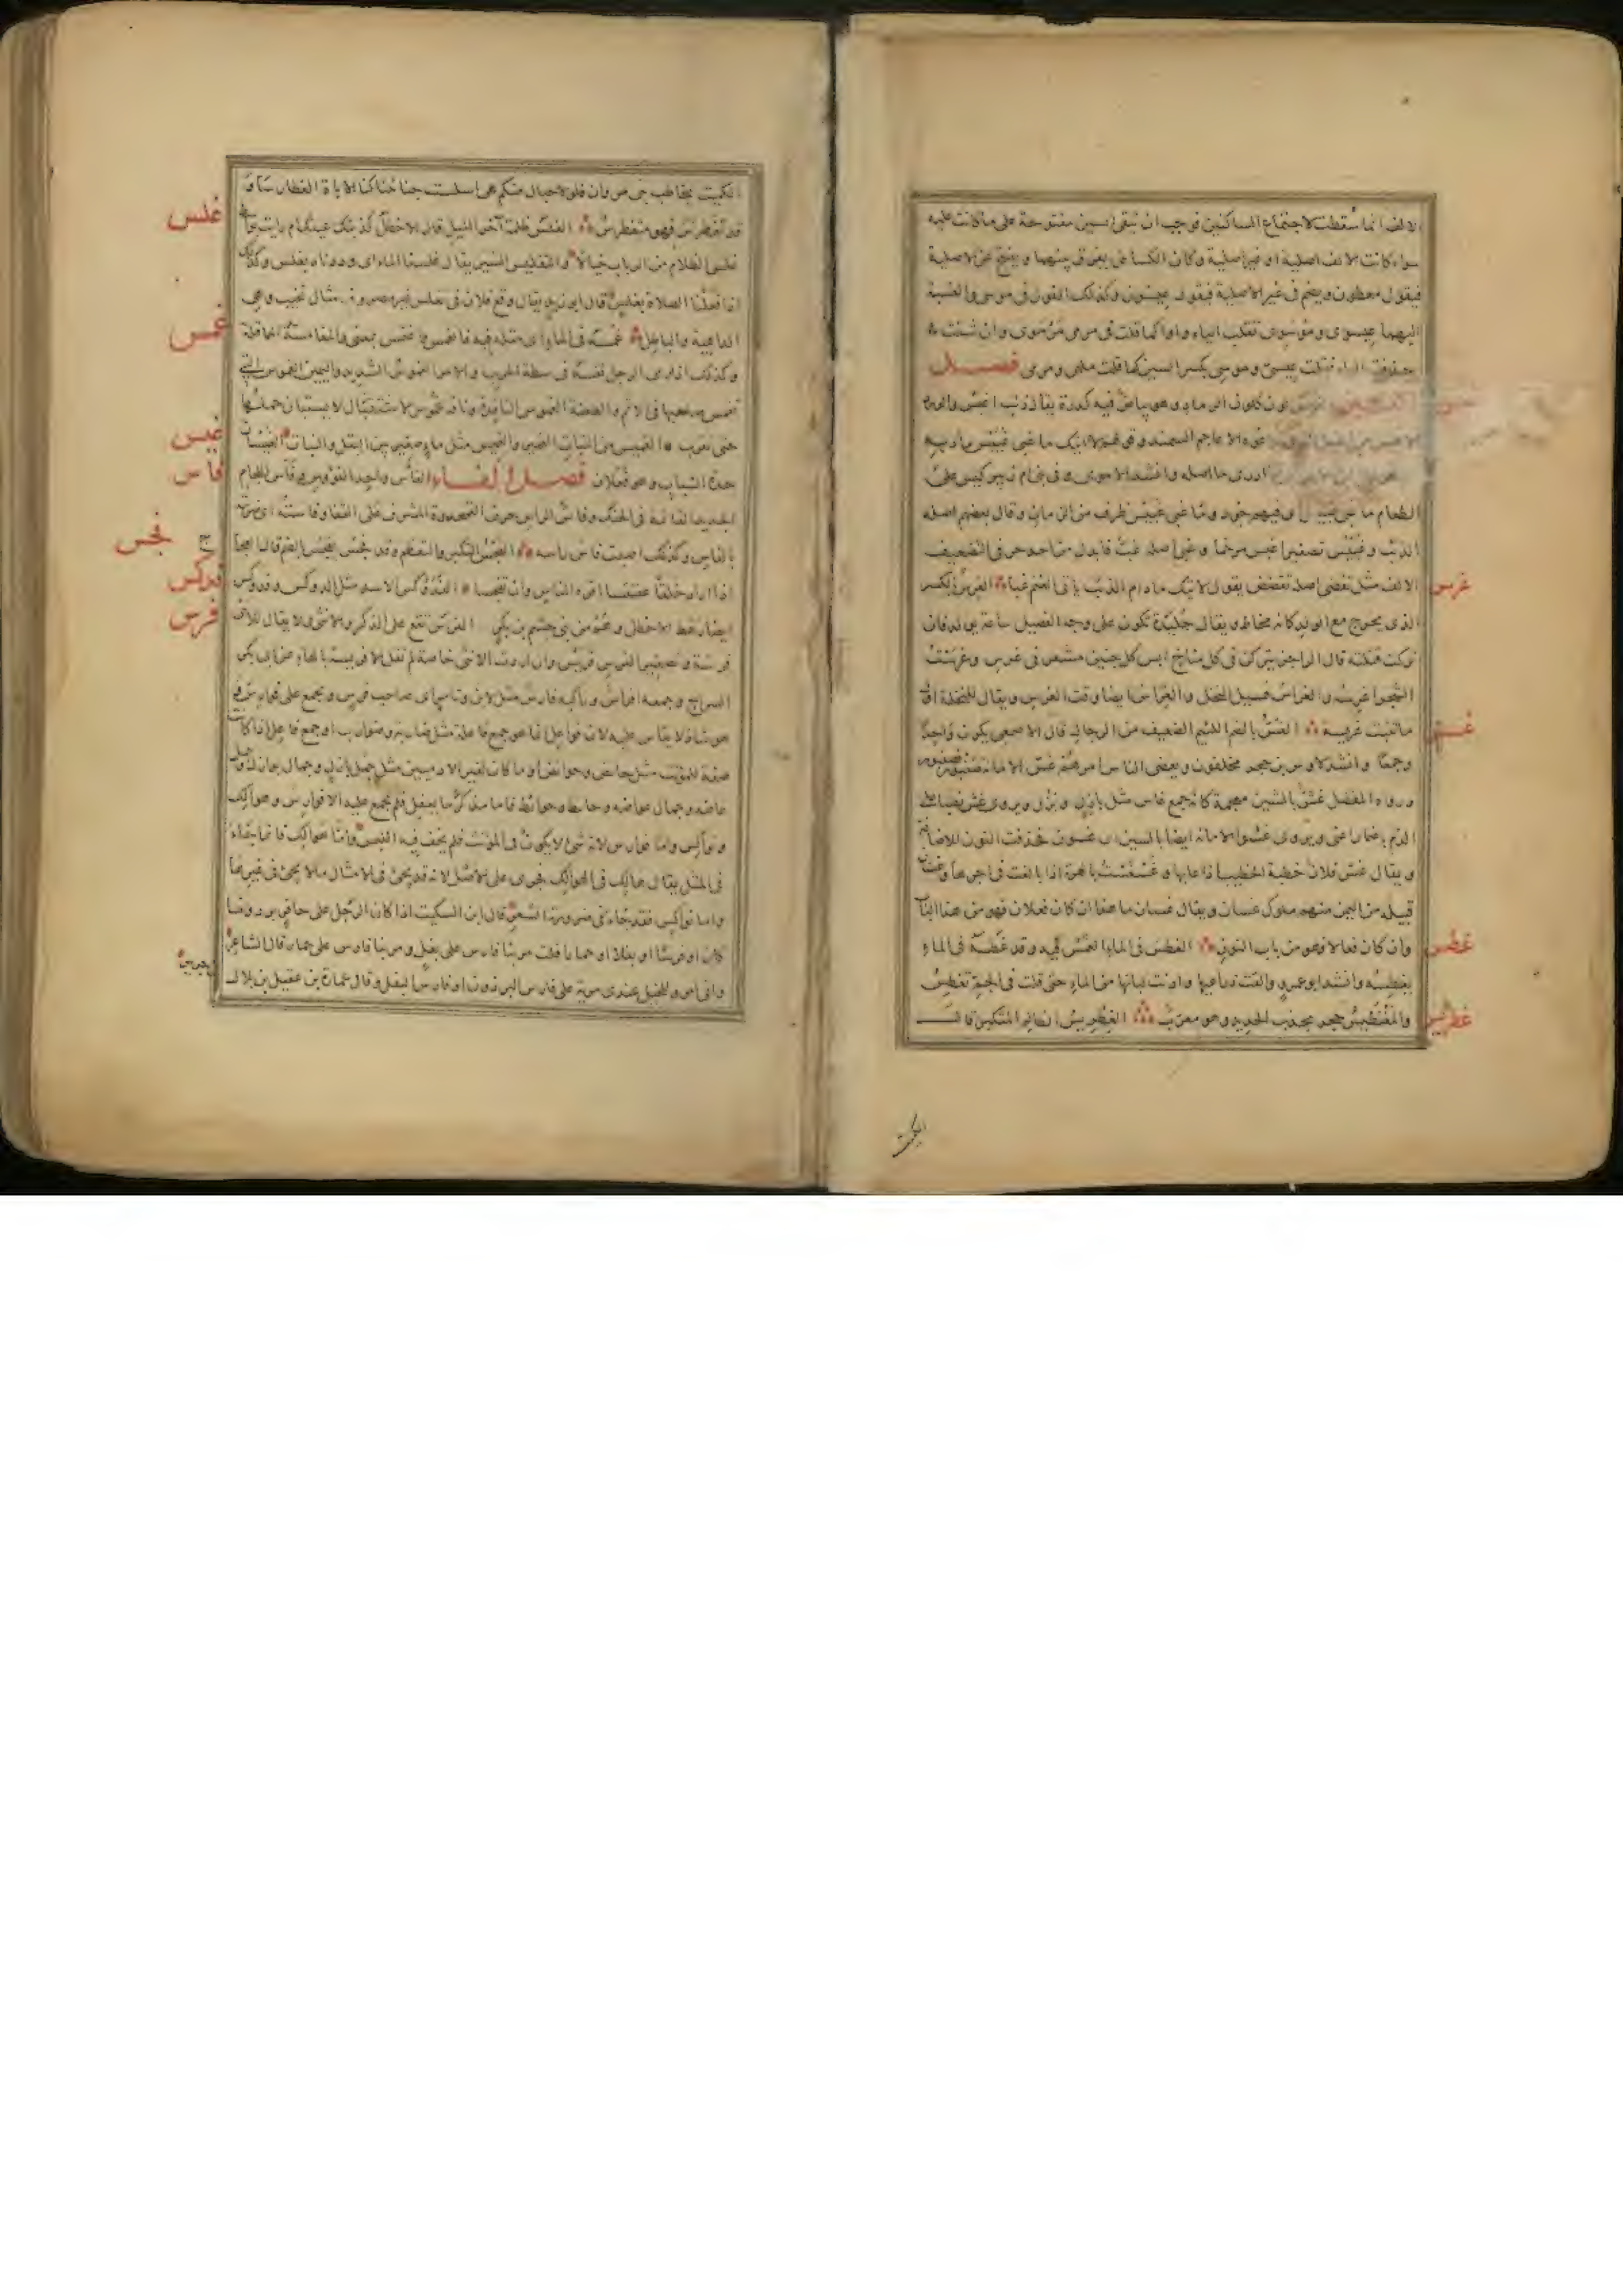 الالف انما سقطت لاجتماع الساكنين فوجب ان تبقى السين مفتوحة على ما كانت عليه
سواء كانت الالف اصلية او غير اصلية وكان الكسائى يفرق بينهما ويفتح فى الاصلية
فيقول معطون ويضم فى غير الاصلية فيقول عيسون وكذلك القول فى موسى والنسبة
اليهما عيسوى وموسوى تقلب الياء واوا كما قلت فى مرمى مرموى وان شئت
حذفت الياء فقلت عيسى وموسى بكسر السين كما قلت مرمى فصل
لون كلون الرماد وهو بياض فيه كدرة يقال ذئب اغبس
الاعاجم السمند وقولهم لا آتيك ما غبى غبيس
ادرى ما اصله وانشد الاموى وفى بنى ام زبير كيس على
الطعام ما غبى غبيس اى فيهم جود وما غبى غبيس ظرف من الزمان وقال بعضهم اصله
الذئب وغبيس تصغير اغبس مرخما وغبى اصله غب فابدل من احد حرفى التضعيف
الالف مثل تقضى اصله تقضض يقول لا آتيك ما دام الذئب ياتى الغنم غبا الغرس بالكسر
غرس
الذى يخرج مع الولد كانه مخاط ويقال جليدة تكون على وجه الفصيل ساعة يولد فان
تركت قتلته قال الراجز يتركن فى كل مناخ ابس كل جنين مشعر فى غرس وغرست
الشجر اغرسه والغراس فسيل النخل والغراس ايضا وقت الغرس ويقال للنخلة اول
ما تنبت غريسة الغس بالضم اللئيم الضعيف من الرجال قال الاصمعى يكون واحدا
غسس
وجمعا وانشد لاوس بن حجر مخلفون ويقضى الناس امرهم غس الامانة صنبور فصنبور
ورواه المفضل غش بالشين معجمة كانه جمع غاش مثل بازل وبزل ويروى غش نصبا على
الذم باضمار اعنى ويروى غسو الامانة ايضا بالسين اى غسون فحذفت النون للاضافة
ويقال غس فلان خطبة الخطيب اذا عابها وغسغست بالهرة اذا بالغت فى زجرها وغسان
قبيلة من اليمن منهم ملوك غسان ويقال غسان ماء هذا ان كان فعلان فهو من هذا الباب
وان كان فعالا فهو من باب النون الغطس فى الماء الغمس فيه وقد غطسه فى الماء
غطس
يغطسه وانشد ابو عمرو والقت ذراعيها وادنت لبانها من الماء حتى قلت فى الجم تغطس
والمغنطيس حجر يجذب الحديد وهو معرب الغطريس الظالم المتكبر قال
غطرس
الكميت
الكميت يخاطب بنى مروان فلولا حبال منكم هى اسلست جنائبنا كنا الاباة الغطارسا و
قد تغطرس فهو متغطرس الغلس ظلمة آخر الليل قال الاخطل كذبتك عينك ام رايت بواسط
غلس
غلس الظلام من الرباب خيالا والتغليس السير يقال غلسنا الماء اى وردناه بغلس وكذلك
اذا فعلنا الصلاة بغلس قال ابو زيد يقال وقع فلان فى تغلس غير مصروف مثال تخيب وهى
الداهية والباطل غمسه فى الماء اى مقله فيه فانغمس واغتمس بمعنى والمغامسة المماقلة
غمس
وكذلك اذا رمى الرجل نفسه فى سطة الحرب والامر الغموس الشديد واليمين الغموس التى
تغمس صاحبها فى الاثم والطعنة الغموس النافذة وناقة غموس لا يستبان حملها
حتى تقرب الغميس من النبات الغمير والغميس مثل مسيل ماء صغير بين البقل والنبات الغيسان
غيس
حدة الشباب وهو فعلان فصل الفاء الفأس واحد الفؤوس وفأس اللجام
فاس
الحديدة القائمة فى الحنك وفأس الرأس حرف القمحدوة المشرف على القفا وفأسته اى ضربته
بالفأس وكذلك اصبت فأس راسه الفجس التكبر والتعظم وقد فجس يفجس بالضم
فجس
الفدوكس الاسد مثل الدوكس وفدوكس
فدكس
ايضا رهط الاخطل وهم من بنى جشم بن بكر الفرس تقع على الذكر والانثى ولا يقال للانثى
فرس
فرسة وتصغير الفرس فريس وان اردت الانثى خاصة لم تقل الا فريسة بالهاء عن ابى بكر
السراج وجمعه افراس وراكبه فارس مثل لابن وتامر اى صاحب فرس ويجمع على فوارس
هو شاذ لا يقاس عليه لان فواعل انما هو جمع فاعلة مثل ضاربة وضوارب او جمع فاعل اذا كان
صفة للمؤنث مثل حائض وحوائض او ما كان لغير الآدميين مثل جمل بازل وجمال بوازل وجمل
عاضه وجمال عواضه وحائط وحوائط فاما مذكر ما يعقل فلم يجمع عليه الا فوارس وهوالك
ونواكس واما فوارس لانه شئ لا يكون فى المؤنث فلم يخف فيه اللبس واما هوالك فانما جاء
فى المثل يقال هالك فى الهوالك فجرى على الاصل لانه قد يجئ فى الامثال ما لا يجئ فى غيرها
واما نواكس فقد جاء فى ضرورة الشعر قال ابن السكيت اذا كان الرجل على حافر برذونا
كان او فرسا او بغلا او حمارا قلت مر بنا فارس على بغل ومر بنا فارس على حمار قال الشاعر
وانى امرؤ للخيل عندى مزية على فارس البرذون او فارس البغل وقال عمارة بن عقيل بن بلال
بن جرير